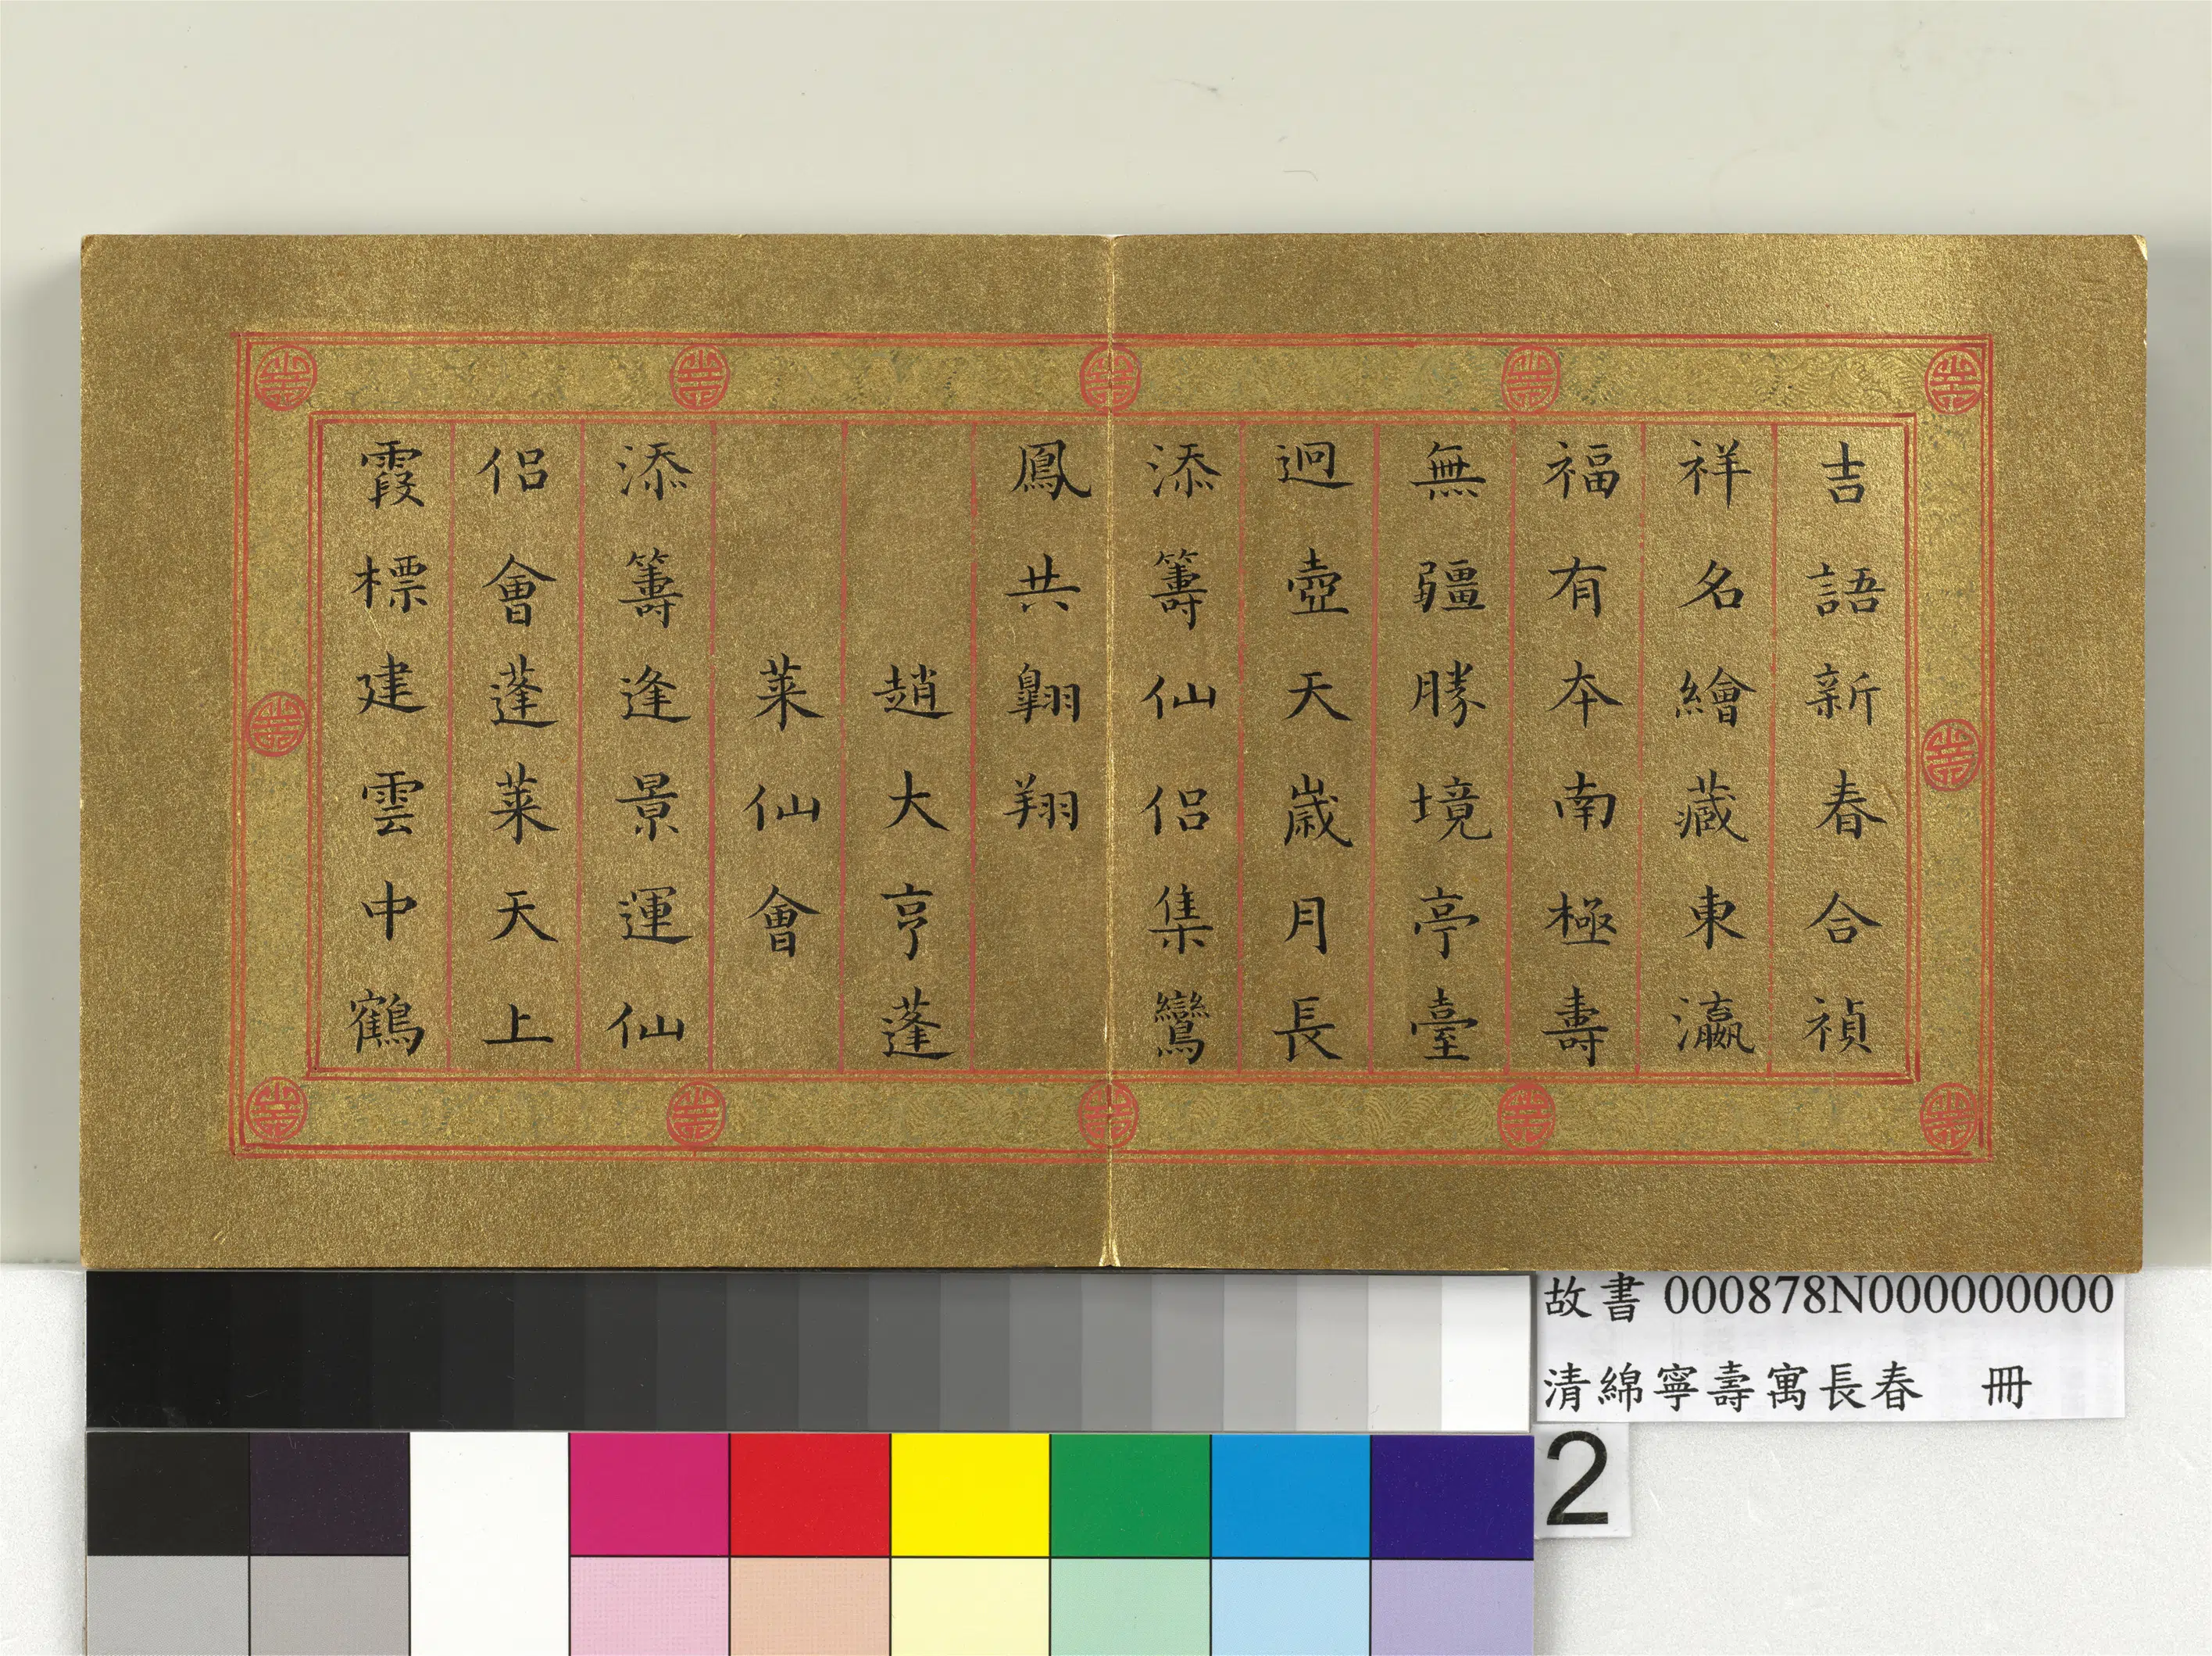 吉語新春合禎
祥名繪藏東瀛
福有本南極壽
無疆勝境亭臺
迥壺天歲月長
添籌仙侶集鸞
鳳共翺翔
趙大亨蓬
萊仙會
添籌逢景運仙
侶會蓬萊天上
霞標建雲中鶴
故書 000878N000000000
清綿寧壽寓長春 冊
2